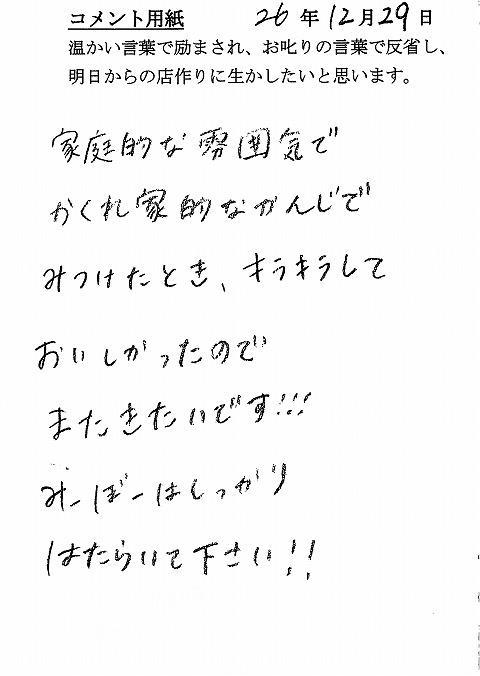 コメント用紙 26年12月29日
温かい言葉で励まされ、お叱りの言葉で反省し、
明日からの店作りに生かしたいと思います。
家庭的な雰囲気で
かくれ家的なかんじで
みつけたとき、キラキラして
おいしかったので
またきたいです!!!
みーぼーはしっかり
はたらいて下さい!!